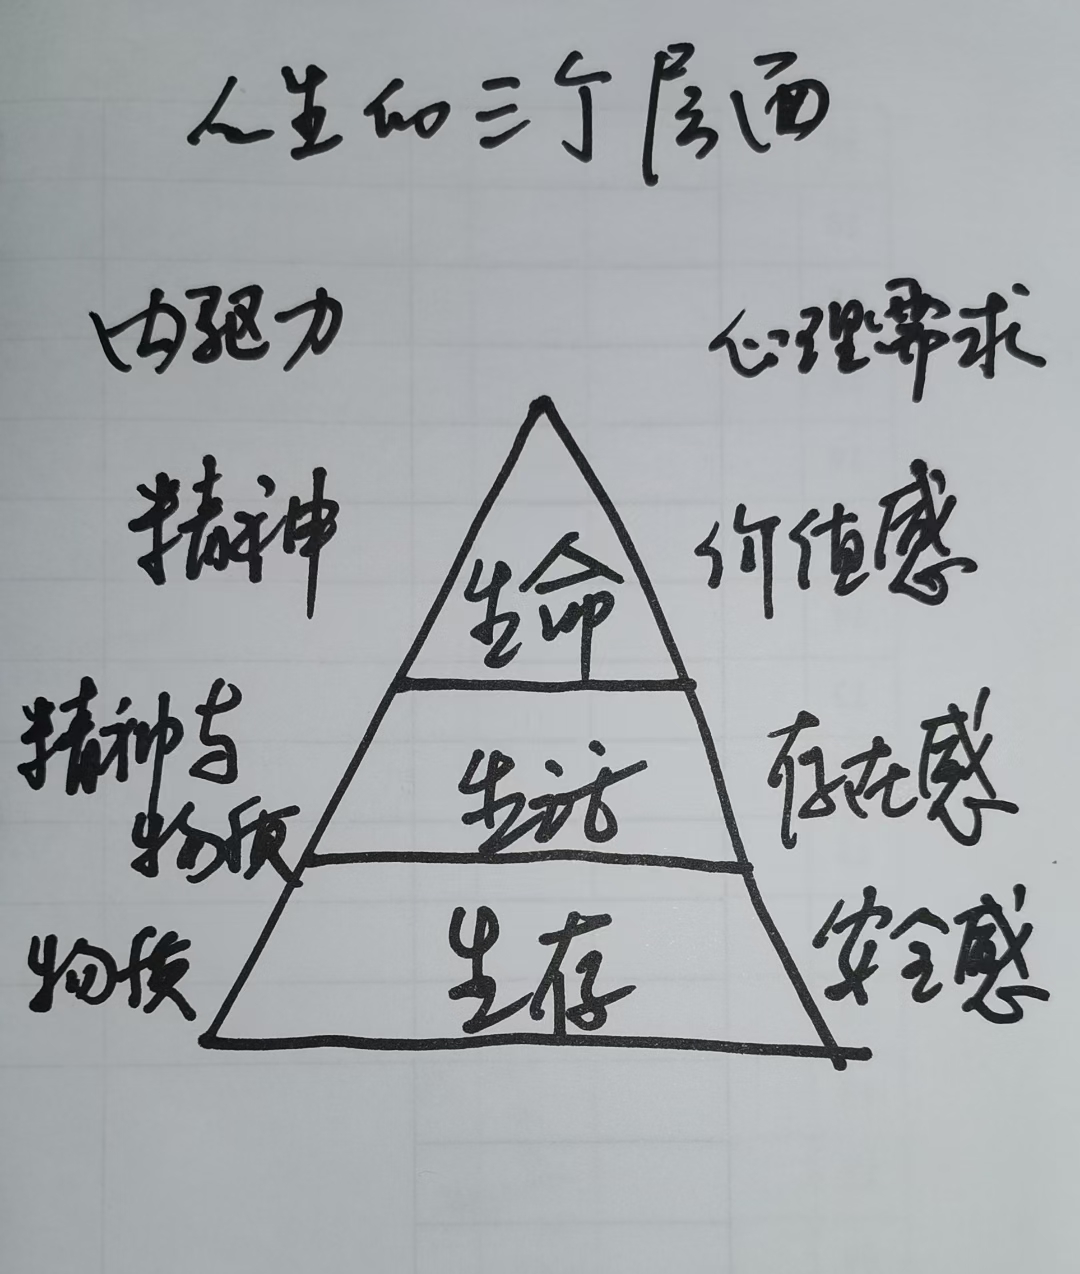 人生的三个层面
内驱力 心理需求
精神 生命 价值感
精神与
物质 生活 存在感
物质 生存 安全感